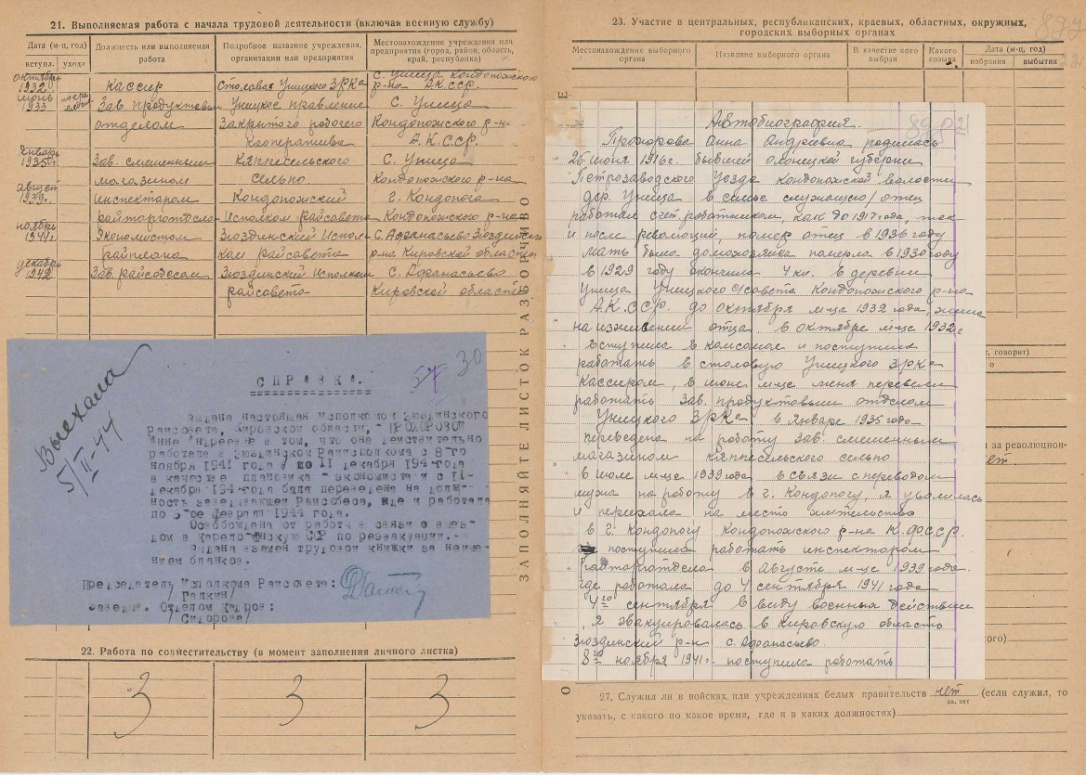 21. Выполняемая работа с начала трудовой деятельности (включая военную службу)
Дата (м-ц, год)
вступл.
ухода
Должность или выполняемая работа
Подробное название учреждения, организации или предприятия
Местонахождение учреждения или предприятия (город, район, область, край, республика)
октябрь 1932
Кассир
Столовая Уницкого ЗРКа
с. Уница Кондопожского р-на АКССР.
июнь 933
Зав. продуктовым отделом
Уницкое правление Закрытого рабочего Кооператива
С. Уница Кондопожского р-н А.К.ССР
Январь 1935г.
Зав. смешенным магазином
Кяппесельского сельпо
С. Уница Кондопожского р-на
август
инспектором райторготдела
Кондопожский Исполком райсовета
г. Кондопога Кондопожского р-на
ноябрь 1941г.
Экономистом Райплана
Зюздинский Исполком райсовета
С. Афанасьево Зюздинского р-на Кировской области
декабрь 1942
Зав. райсобесом
Зюздинский исполком райсовета
С. Афанасьево Кировской области
Выехала
5/II-44
57
30
СПРАВКА.
Выдана настоящая исполкомом Зюздинского
Райсовета, Кировской области, ПРОХОРОВОЙ
Анне Андреевне в том, что она действительно
работала в Зюздинском Райисполкоме с 8-го
ноября 1941 года по 11 декабря 194 года
в качестве плановика-экономиста и с 11-
декабря 194 года была переведена на долж-
ность заведывающей Райсобеса, где и работала
по 5-ое февраля 1944 года.
Освобождена от работы в связи с выез-
дом в Карело-Финскую ССР по реэвакуации.
Выдана взамен трудовой книжки за неиме-
нием бланков.
Председатель Исполкома Райсовета:
/Галкин/
Заведыв. Отделом кадров:
/Сидорова/
22. Работа по совместительству (в момент заполнения личного листка)
З З З
ЗАПОЛНЯЙТЕ ЛИСТОК РАЗБОРЧИВО
23. Участие в центральных, республиканских, краевых, областных, окружных,
городских выборных органах
Местонахождение выборного органа
Название выборного органа
В качестве кого выбран
Какого созыва
Дата (м-ц, год)
избрания
выбытия
Автобиография.
Прохорова Анна Андреевна родилась
26 июня 1916г. бывшей Олонецкой губернии
Петрозаводского Уезда Кондопожской волости
дер. Уница в семье служущего/ отец
работал счет. работником, как до 1917 года, так
и после революций, помер отец в 1936 году
мать была домохозяйка померла в 1930 году
в 1929 году окончила 4 кл. в деревни
Уница Уницкого С/совета Кондопожского р-на
А.К.ССР. до октября м-ца 1932 года, жила
на иждивении отца. в октябре м-це 1932г
вступила в комсомол и поступила
работать в столовую Уницкого ЗРКа
Кассиром, в июне м-це меня перевели
работать Зав. продуктовым отделом
Уницкого ЗРКа в Январе 1935 года
переведена на работу зав. смешенным
магазином Кяппесельского сельпо
в июле м-це 1939 года в связи с переводом
мужа на работу в г. Кондопогу, я уволилась
и переехала на место жительство
в г. Кондопогу Кондопожского р-на К.ФССР.
поступила работать инспектором
Райторготдела в августе м-це 1939 года.
где работала до 4 сентября 1941 года
4го сентября в виду военных действий
я эвакуировалась в Кировскую область
Зюздинский р-н с. Афанасьево.
8го ноября 1941г. поступила работать
с, говорит)
за революцион-
нет
ого)
27. Служил ли в войсках или учреждениях белых правительств нет (если служил, то
да, нет
указать, с какого по какое время, где и в каких должностях)